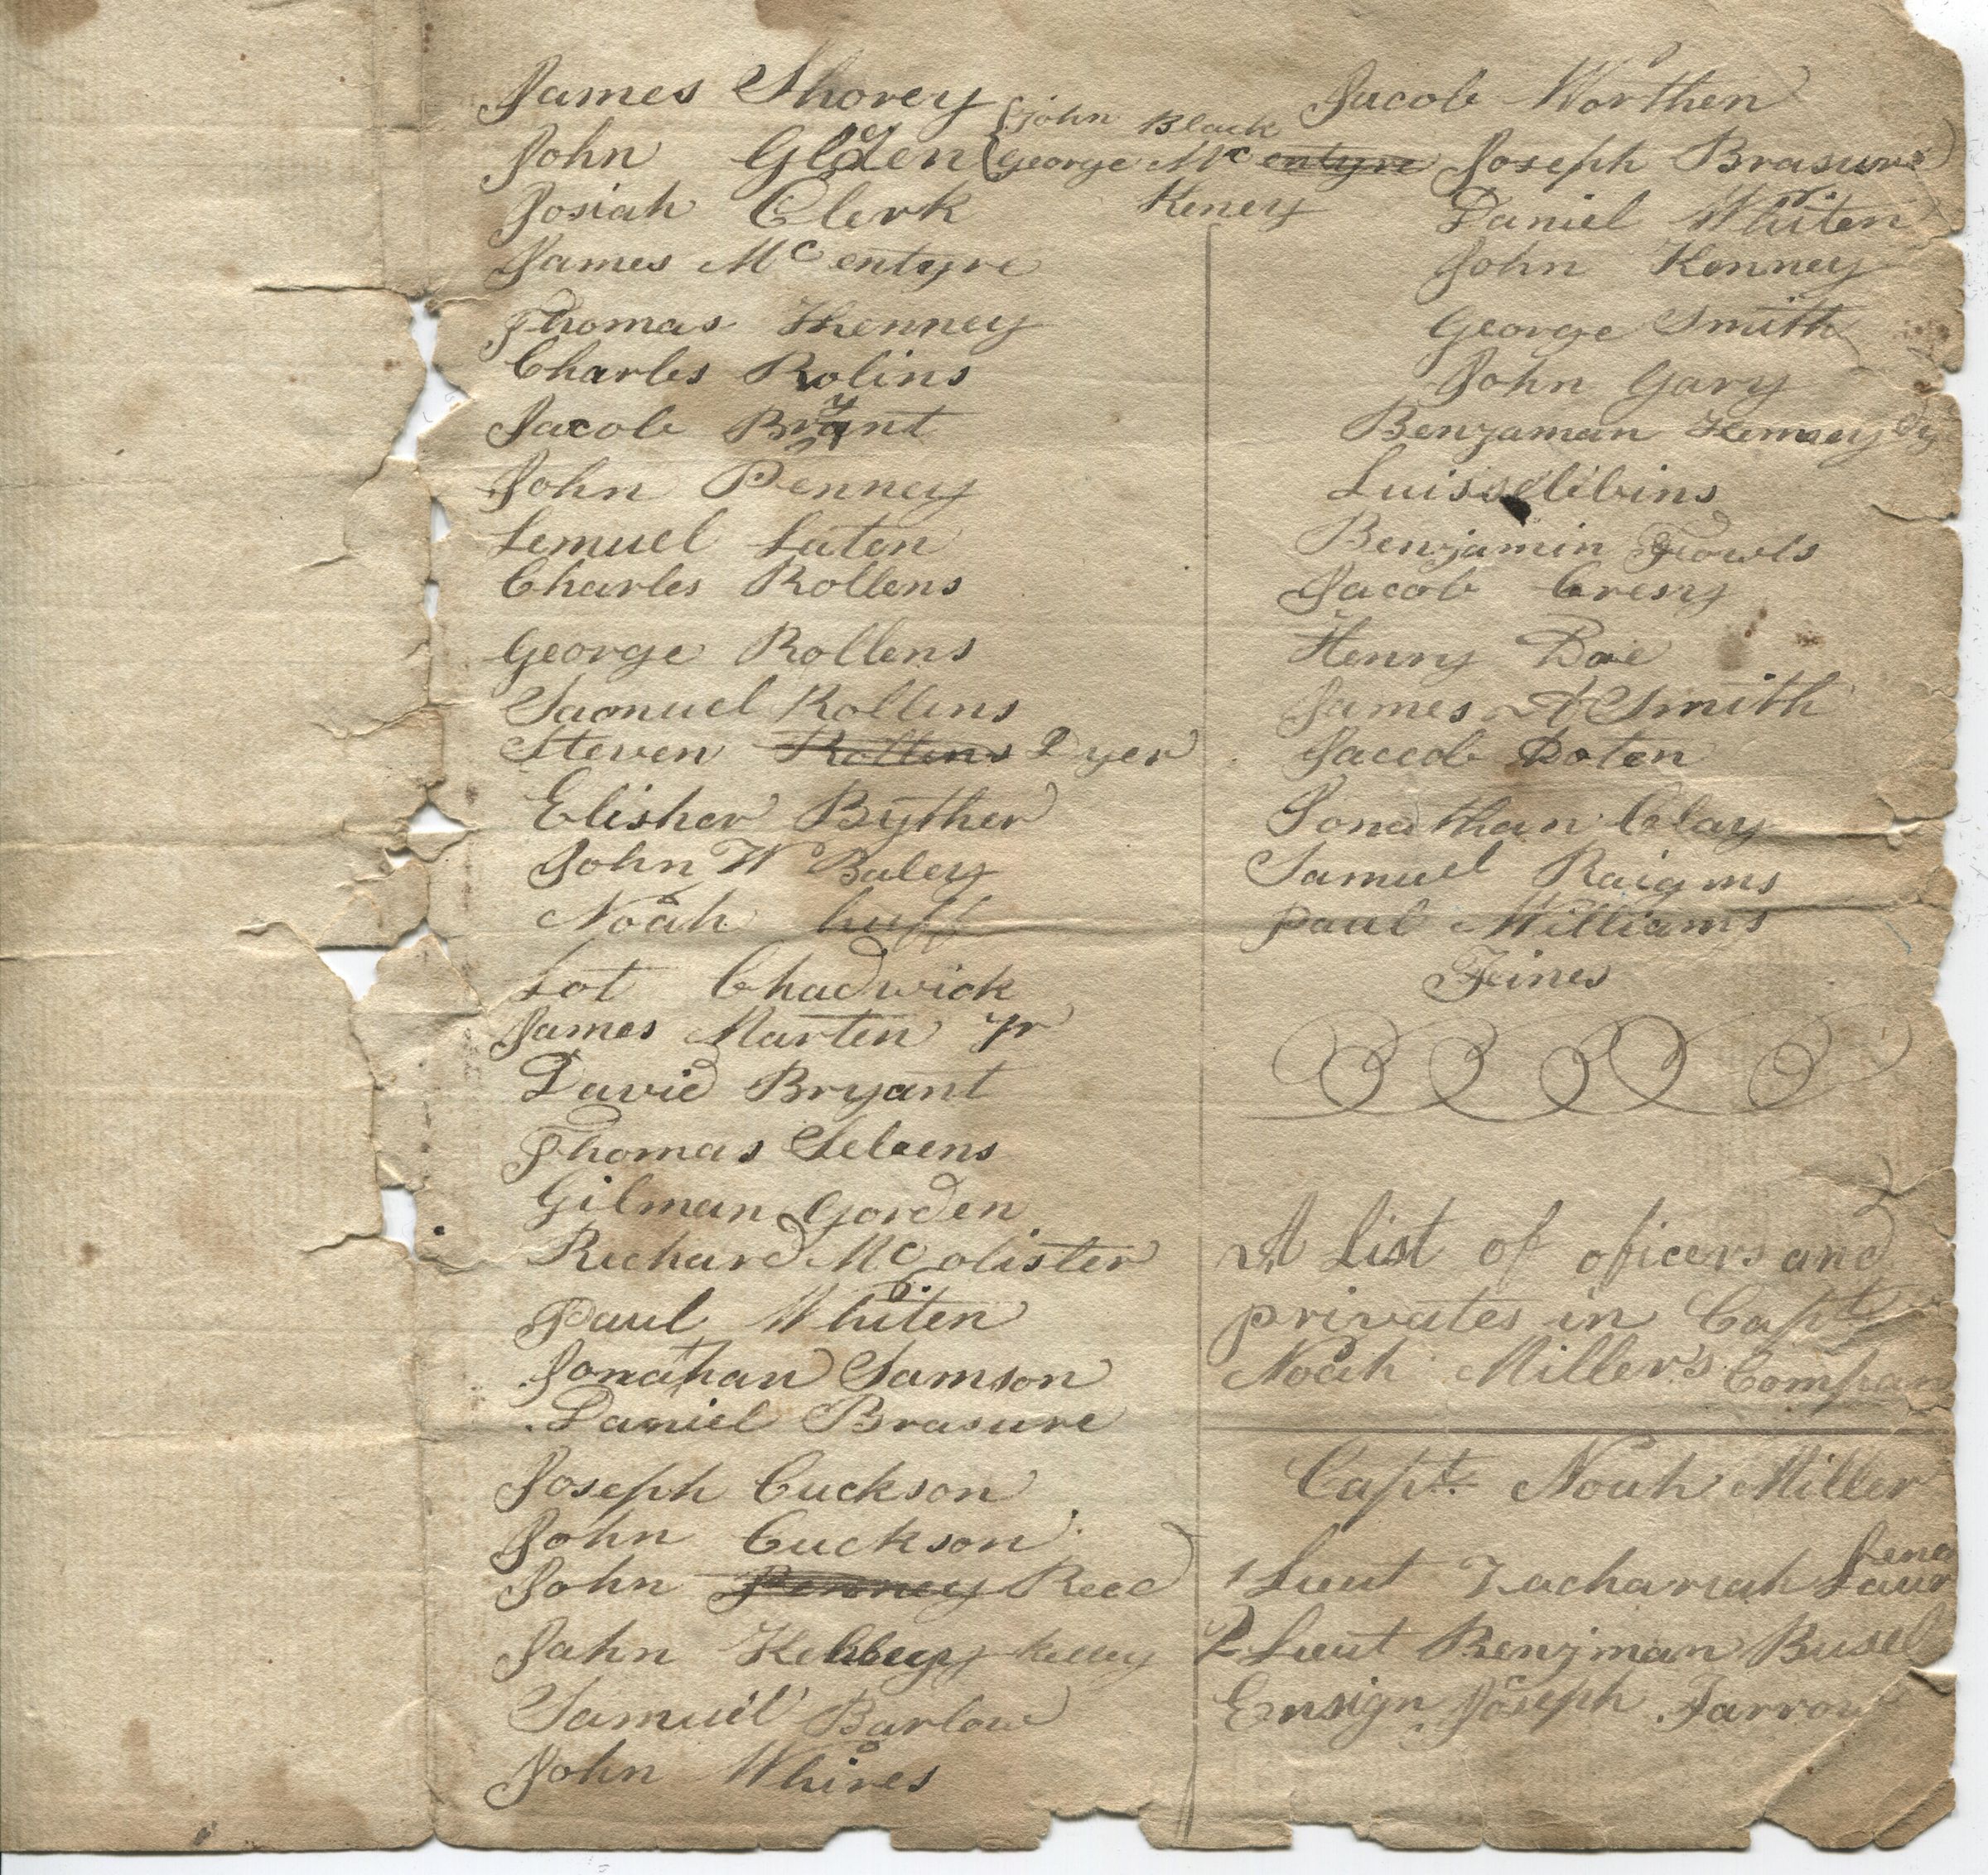 James Shorey
John Glden
Josiah Clerk
James Mc entyre
Thomas Kenney
Charles Rolins
Jacob Bryant
John Penney
Lemuel Laten
Charles Rollens
George Rollens
Samuel Rollins
Steven Rollins Dyer
Elisher Byther
John W Baley
Noah huff
Lot Chadwick
James Marten Jr
David Bryant
Thomas Stebens
Gilman Gorden
Richard Mc olister
Paul Whiten
Jonathan Samson
Daniel Brasure
Joseph Cuckson
John Cuckson
John Penney Reed
John Kelley
Samuel Barlow
John Whires
John Black
George Mc entyre
Keney
Jacob Worthen
Joseph Brasure
Daniel Whiten
John Kenney
George Smith
John Gary
Benjaman Kenney
Luis
Benjamin Fowls
Jacob Cresy
Henry Doe
James A Smith
Jacob Doten
Jonathan Clay
Samuel Raigins
Paul Williams
Feines
A List of oficers and
privates in Capt
Noah Miller's Compan
Capt. Noah Miller
1 Lieut Zachariah
2 Lieut Benjman Busel
Ensign Joseph Farrow